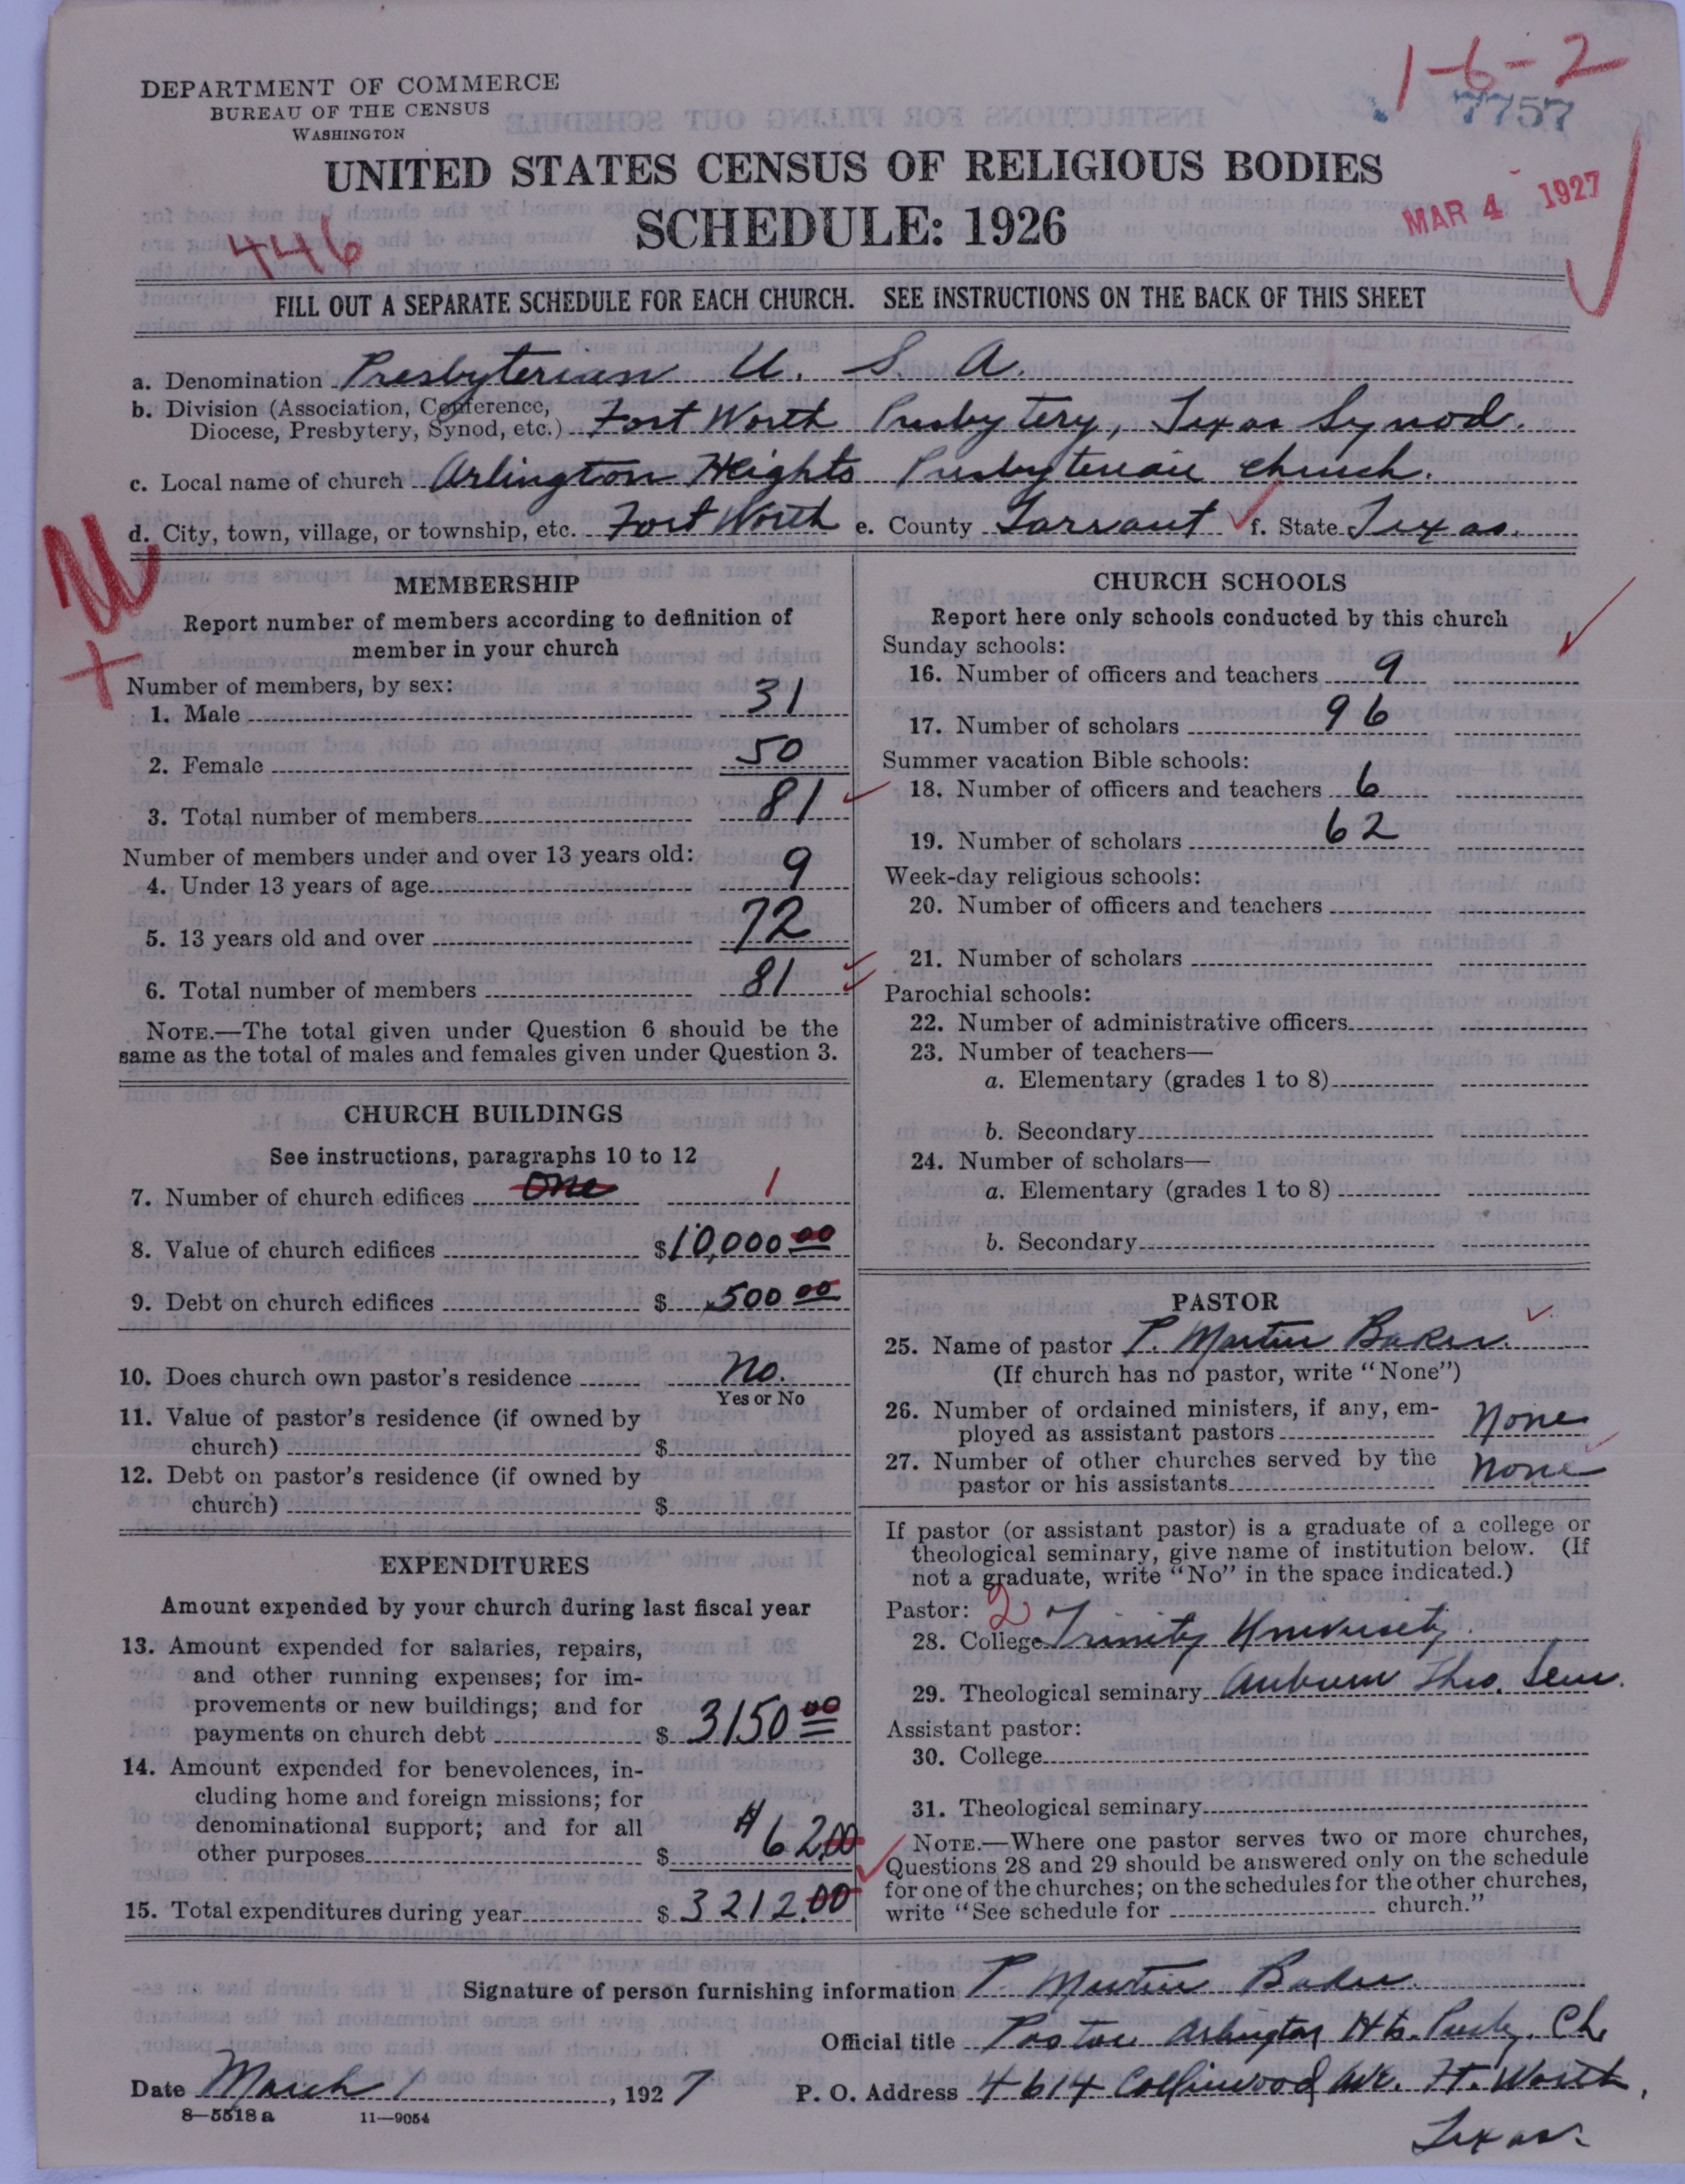 1-6-2
7757
DEPARTMENT OF COMMERCE
BUREAU OF THE CENSUS
WASHINGTON
UNITED STATES CENSUS OF RELIGIOUS BODIES
SCHEDULE: 1926
MAR 4 1927
446
FILL OUT A SEPARATE SCHEDULE FOR EACH CHURCH. SEE INSTRUCTIONS ON THE BACK OF THIS SHEET
a. Denomination Presbyterian U. S. A.
b. Division (Association, Conference,
Diocese, Presbytery, Synod, etc.) Fort Worth Presbytery, Texas Synod.
c. Local name of church Arlington Heights Presbyterian church.
d. City, town, village, or township, etc. Fort Worth e. County Tarrant f. State Texas.
MEMBERSHIP
Report number of members according to definition of
member in your church
Number of members, by sex:
1. Male 31
2. Female 50
3. Total number of members 81
Number of members under and over 13 years old:
4. Under 13 years of age 9
5. 13 years old and over 72
6. Total number of members 81
NOTE.—The total given under Question 6 should be the
same as the total of males and females given under Question 3.
CHURCH BUILDINGS
See instructions, paragraphs 10 to 12
7. Number of church edifices One 1
8. Value of church edifices $10,000 00
9. Debt on church edifices $ 500 00
10. Does church own pastor's residence No.
Yes or No
11. Value of pastor's residence (if owned by
church) $
12. Debt on pastor's residence (if owned by
church) $
EXPENDITURES
Amount expended by your church during last fiscal year
13. Amount expended for salaries, repairs,
and other running expenses; for im-
provements or new buildings; and for
payments on church debt $ 3150 00
14. Amount expended for benevolences, in-
cluding home and foreign missions; for
denominational support; and for all
other purposes $ $62.00
15. Total expenditures during year $ 3212.00
CHURCH SCHOOLS
Report here only schools conducted by this church
Sunday schools:
16. Number of officers and teachers 9
17. Number of scholars 96
Summer vacation Bible schools:
18. Number of officers and teachers 6
19. Number of scholars 62
Week-day religious schools:
20. Number of officers and teachers
21. Number of scholars
Parochial schools:
22. Number of administrative officers
23. Number of teachers—
a. Elementary (grades 1 to 8)
b. Secondary
24. Number of scholars—
a. Elementary (grades 1 to 8)
b. Secondary
PASTOR
25. Name of pastor P. Martin Baker.
(If church has no pastor, write "None")
26. Number of ordained ministers, if any, em-
ployed as assistant pastors None
27. Number of other churches served by the
pastor or his assistants None
If pastor (or assistant pastor) is a graduate of a college or
theological seminary, give name of institution below. (If
not a graduate, write "No" in the space indicated.)
Pastor: 2
28. College Trinity University
29. Theological seminary Auburn Theo. Sem.
Assistant pastor:
30. College
31. Theological seminary
NOTE.—Where one pastor serves two or more churches,
Questions 28 and 29 should be answered only on the schedule
for one of the churches; on the schedules for the other churches,
write "See schedule for church."
Signature of person furnishing information P. Martin Baker.
Official title Pastor Arlington Hts. Presby. Ch.
Date March 1, 1927 P. O. Address 4614 Collinwood Ave. Ft. Worth,
Texas.
8—5518 a 11—9054